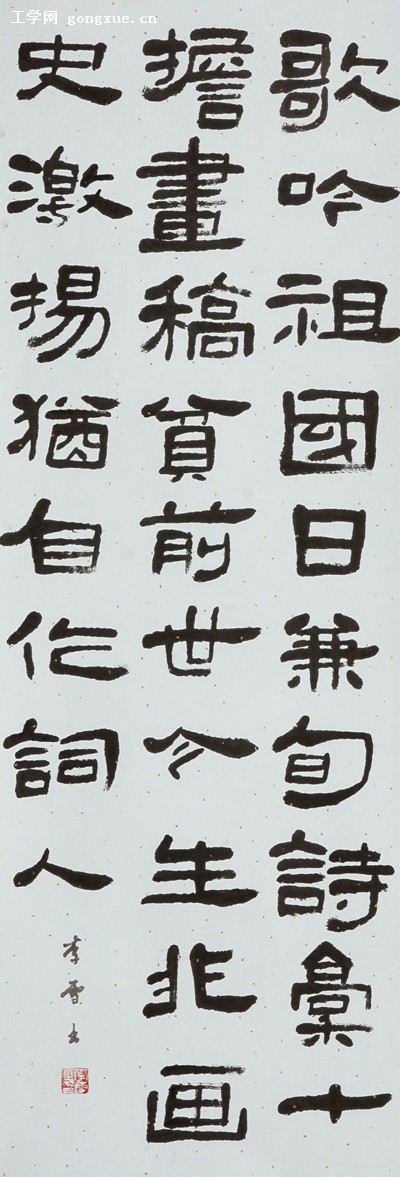 工学网 gongxue.cn
歌吟祖國日兼旬詩槀十
擔畫稿貧前世今生非画
史激揚猶自作詞人
李雪书